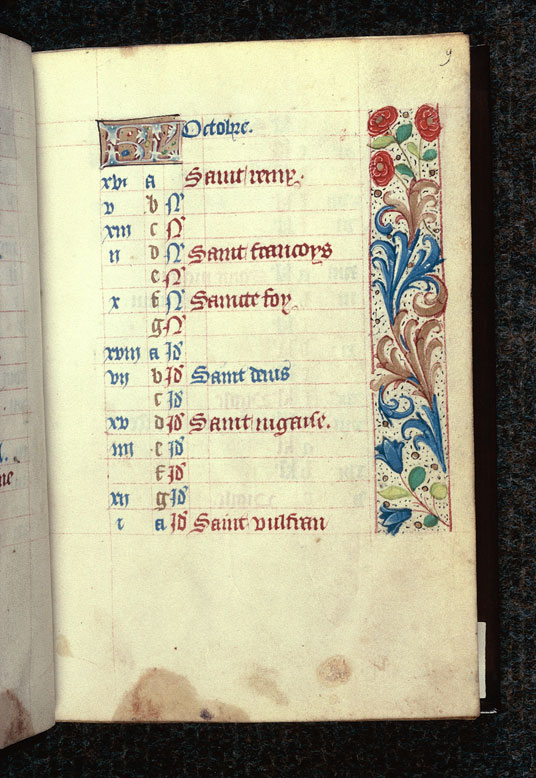 9
KL Octobre.
xvi a Saint remy.
v b N
xiii c N
ii d N Saint francoys
e N
x f N Saincte foy
g N
xviii a Id
vii b Id Saint denis
c Id
xv d Id Saint nigaise.
iiii e Id
f Id
xii g Id
i a Id Saint vulfran